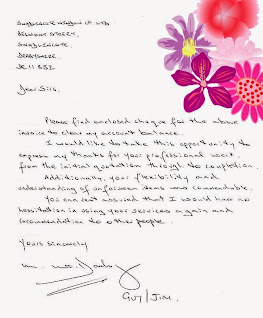 BELMONT STREET,
SWADLINCOTE,
DERBYSHIRE
DE11 8S2
Dear Sirs,
Please find enclosed cheque for the above
invoice to clear my account balance.
I would like to take this opportunity to
express my thanks for your professional work
from the initial quotation through to completion.
Additionally, your flexibility and
understanding of unforeseen items was commendable.
You can rest assured that I would have no
hesitation in using your services again and
recommendation to other people.
Yours sincerely